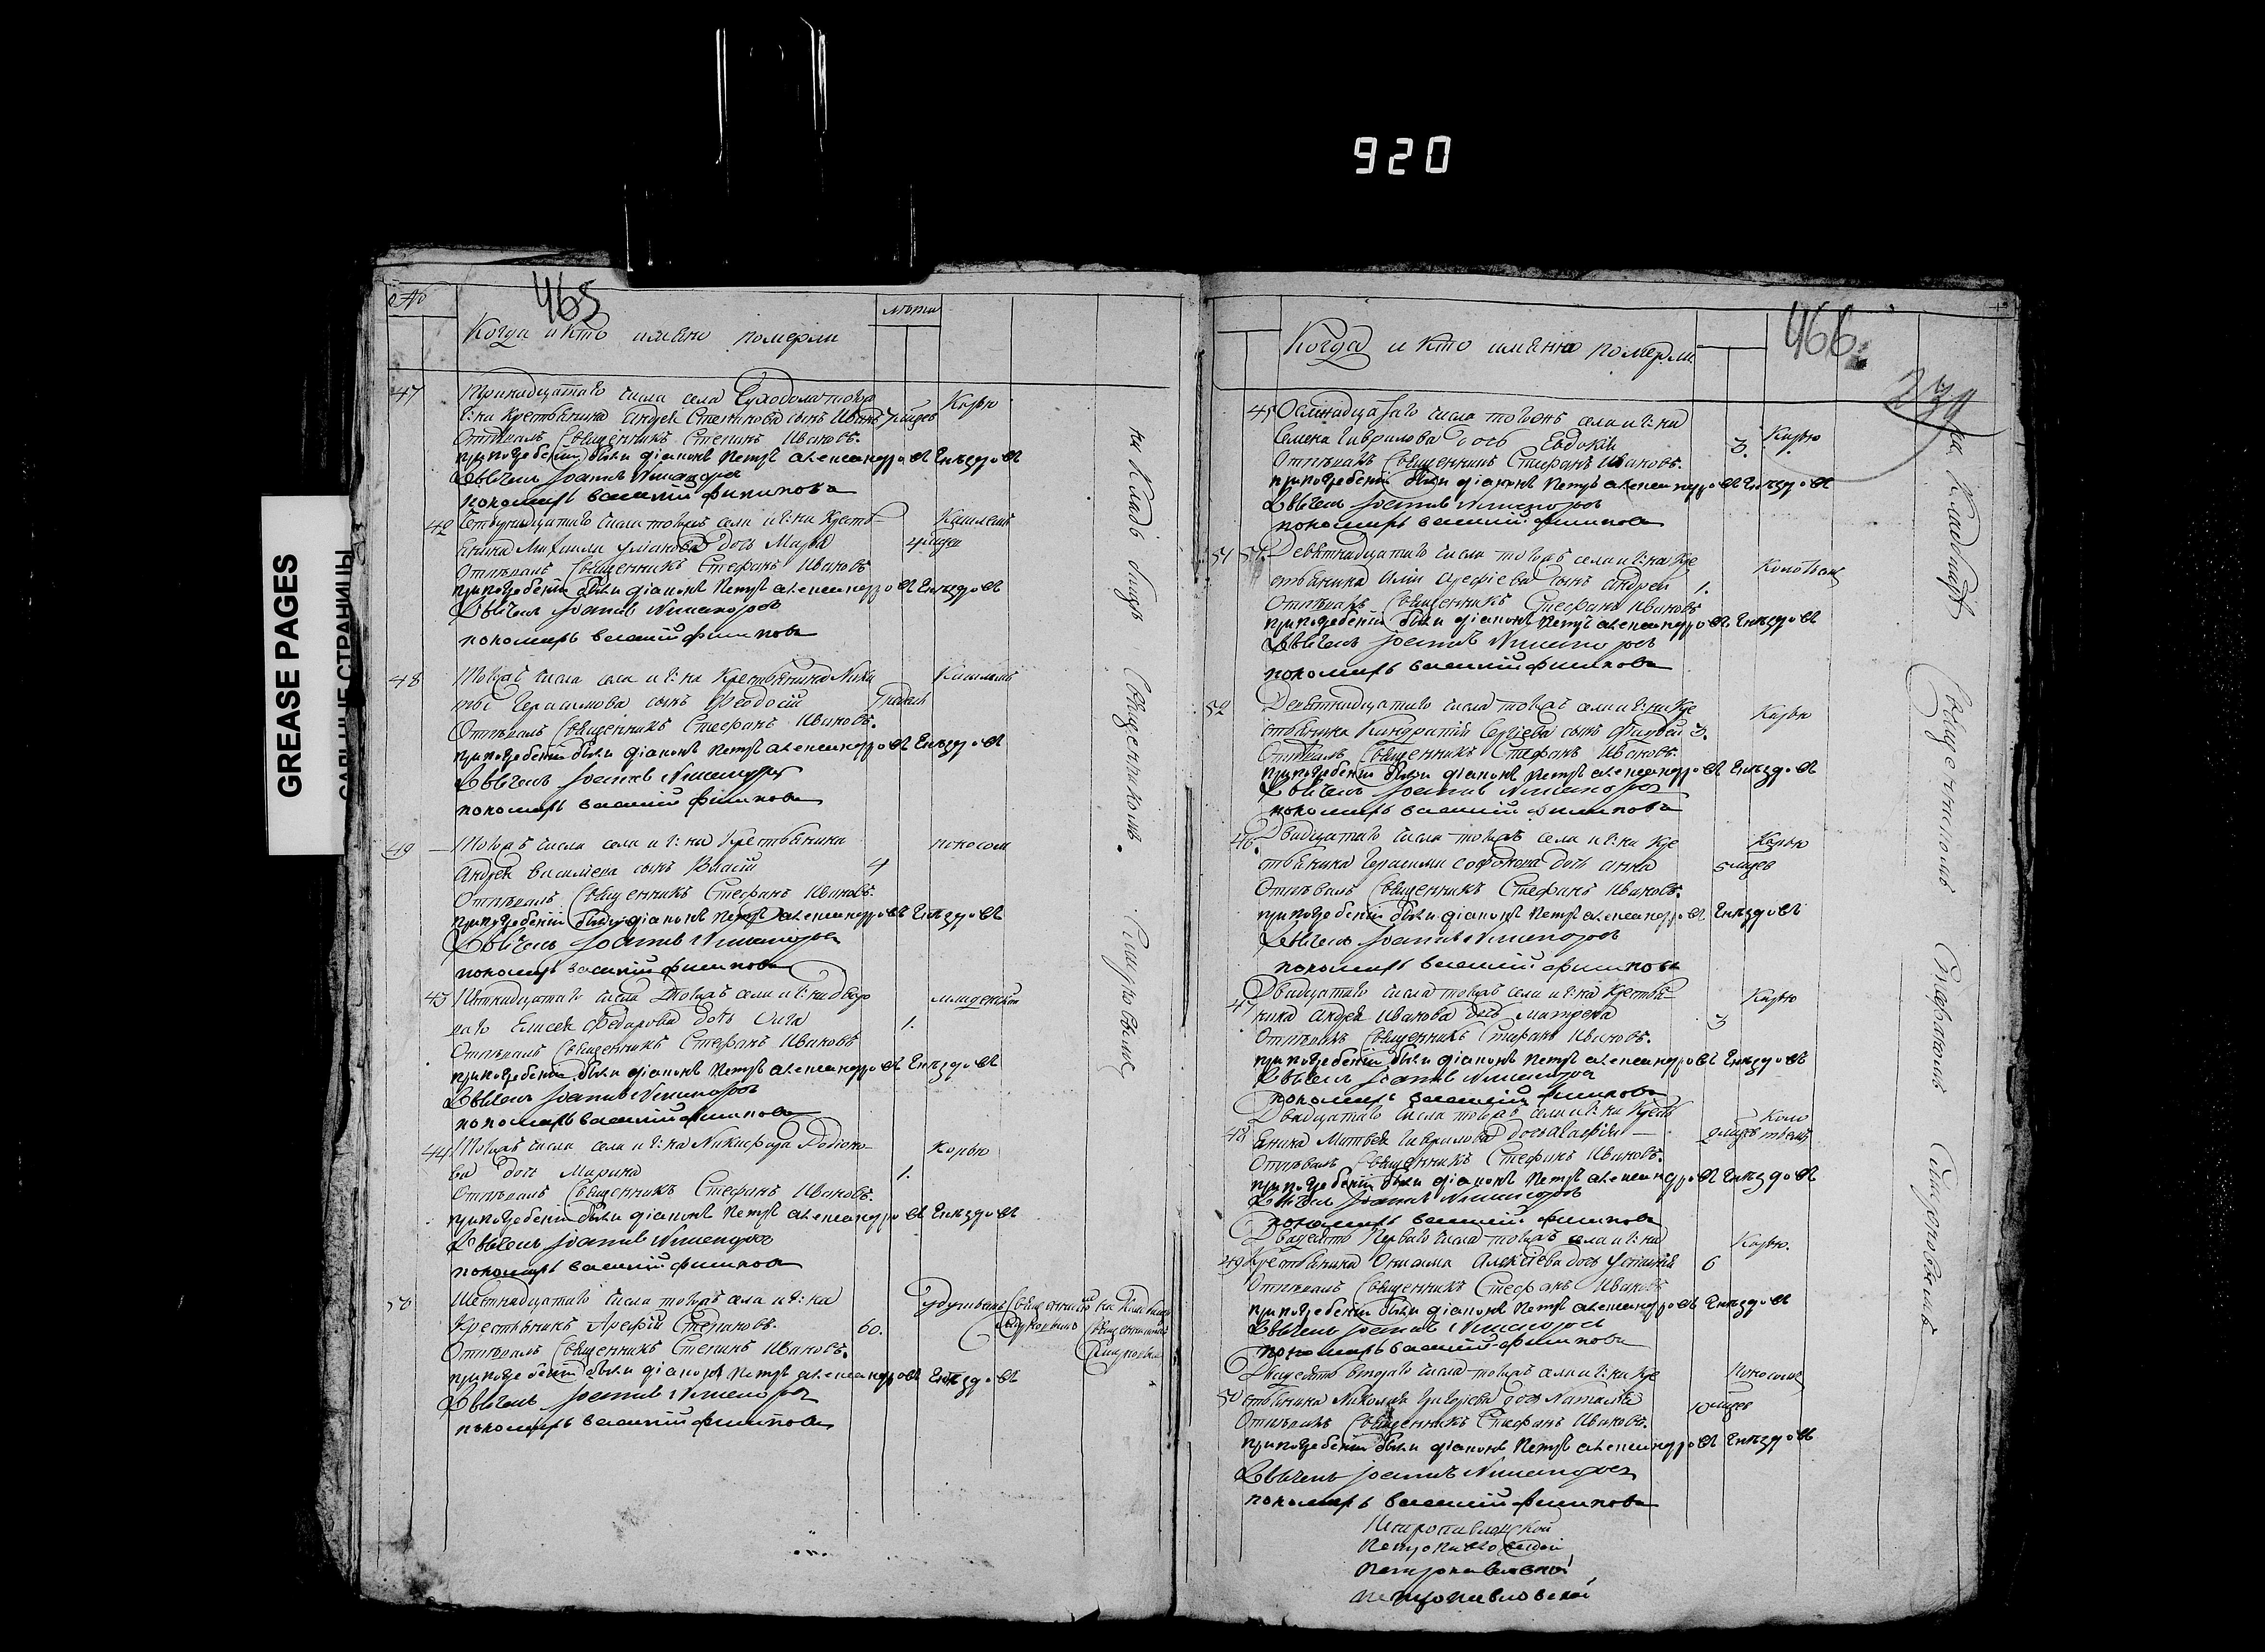 920
GREASE PAGES
САЛЬНЫЕ СТРАНИЦЫ
465
№
Когда и кто имяно померли
лѣта
47
Тринадцатаго числа села Суходола тогоже
Г:на Крестьянина Андрея сынъ Иванъ 7 мцов
Корью
Отпѣвалъ Священникъ Стефанъ Ивановъ.
при погребенiи были дiаконъ Петръ александровъ Гнѣздовъ
Дьячекъ Iоаннъ Никаноровъ
пономарь василiй филипова
42
Четырнадцатаго числа тогожъ села и Г:на Кресть
янина Михаила дочь Марья
4 мцов
Кашлемъ
Отпѣвалъ Священникъ Стефанъ Ивановъ
при погребенiи были дiаконъ Петръ александровъ Гнѣздовъ
Дьячекъ Iоаннъ Никаноровъ
пономарь василiй филипова
48
Тогожъ числа села и Г:на Крестьянина Ники
ты Герасимова сынъ Феодосiй
Кашлемъ
Отпѣвалъ Священникъ Стефанъ Ивановъ.
при погребенiи были дiаконъ Петръ александровъ Гнѣздовъ
Дьячекъ Iоаннъ Никаноровъ
пономарь василiй филипова
49
Тогожъ числа села и Г:на Крестьянина
Андрея василиева сынъ Власiй
4
поносом
Отпѣвалъ Священникъ Стефанъ Ивановъ.
при погребенiи были дiаконъ Петръ александровъ Гнѣздовъ
Дьячекъ Iоаннъ Никаноровъ
пономарь василiй филипова
43
Пятнадцатаго числа тогожъ села и Г:на дворо
ваго Елисея Федорова дочь Олга
1.
младенской
Отпѣвалъ Священникъ Стефанъ Ивановъ
при погребенiи были дiаконъ Петръ александровъ Гнѣздовъ
Дьячекъ Iоаннъ Никаноровъ
пономарь василiй филипова
44
Тогожъ числа села и Г:на Никифора Родионо
ва дочь Марина
1.
Корью
Отпѣвалъ Священникъ Стефанъ Ивановъ.
при погребенiи были дiаконъ Петръ александровъ Гнѣздовъ
Дьячекъ Iоаннъ Никаноровъ
пономарь василiй филипова
50
Шестнадцатаго числа тогожъ села и Г:на
Крестьянинъ Арефiй Степановъ.
60.
Удушьемъ
Отпѣвалъ Священникъ Стефанъ Ивановъ.
при погребенiи были дiаконъ Петръ александровъ Гнѣздовъ
Дьячекъ Iоаннъ Никаноровъ
пономарь василiй филипова
на Кладбищѣ Священникомъ.
466
Когда и кто имянно померли
45
Осмнадцатаго числа тогожъ села и Г:на
Семена Гаврилова дочь Евдокiя
3.
Корью
Отпѣвалъ Священникъ Стефанъ Ивановъ.
при погребенiи были дiаконъ Петръ александровъ Гнѣздовъ
Дьячекъ Iоаннъ Никаноровъ
пономарь василiй филипова
51
Девятнадцатаго числа тогожъ села и Г:на Кре
стьянина Арефiева сынъ Андрей
1.
Отпѣвалъ Священникъ Стефанъ Ивановъ
при погребенiи были дiаконъ Петръ александровъ Гнѣздовъ
Дьячекъ Iоаннъ Никаноровъ
пономарь василiй филипова
52
Девятнадцатаго числа тогожъ села и Г:на Кре
стьянина Кондратiя Сергiева сынъ
3.
Корью
Отпѣвалъ Священникъ Стефанъ Ивановъ.
при погребенiи были дiаконъ Петръ александровъ Гнѣздовъ
Дьячекъ Iоаннъ Никаноровъ
пономарь василiй филипова
46.
Двадцатаго числа тогожъ села и Г:на Кре
стьянина Герасима Софонова дочь анна
5 мцев
Корью
Отпѣвалъ Священникъ Стефанъ Ивановъ.
при погребенiи были дiаконъ Петръ александровъ Гнѣздовъ
Дьячекъ Iоаннъ Никаноровъ
пономарь василiй филипова
47
Двадцатаго числа тогожъ села и Г:на Крестья
нина Андрея Иванова дочь матрена
3
Корью
Отпѣвалъ Священникъ Стефанъ Ивановъ.
при погребенiи были дiаконъ Петръ александровъ Гнѣздовъ
Дьячекъ Iоаннъ Никаноровъ
пономарь василiй филипова
48
Двадцатаго числа тогожъ села и Г:на Кресть
янина Матвея Гаврилова дочь Агафiя
Отпѣвалъ Священникъ Стефанъ Ивановъ.
при погребенiи были дiаконъ Петръ александровъ Гнѣздовъ
Дьячекъ Iоаннъ Никаноровъ
пономарь василiй филипова
49
Двадесять Перваго числа тогожъ села и Г:на
Крестьянина Алексiева дочь Устинiя
6
Корью.
Отпѣвалъ Священникъ Стефанъ Ивановъ
при погребенiи были дiаконъ Петръ александровъ Гнѣздовъ
Дьячекъ Iоаннъ Никаноровъ
пономарь василiй филипова
50
Двадесять втораго числа тогожъ села и Г:на Кре
стьянина Николая Григорiева дочь Наталiя
10 мцев
Поносомъ
Отпѣвалъ Священникъ Стефанъ Ивановъ.
при погребенiи были дiаконъ Петръ александровъ Гнѣздовъ
Дьячекъ Iоаннъ Никаноровъ
пономарь василiй филипова
Петропавловской
Петропавловской
Петропавловской
Петропавловской
на Кладбищѣ Священникомъ Стефаномъ